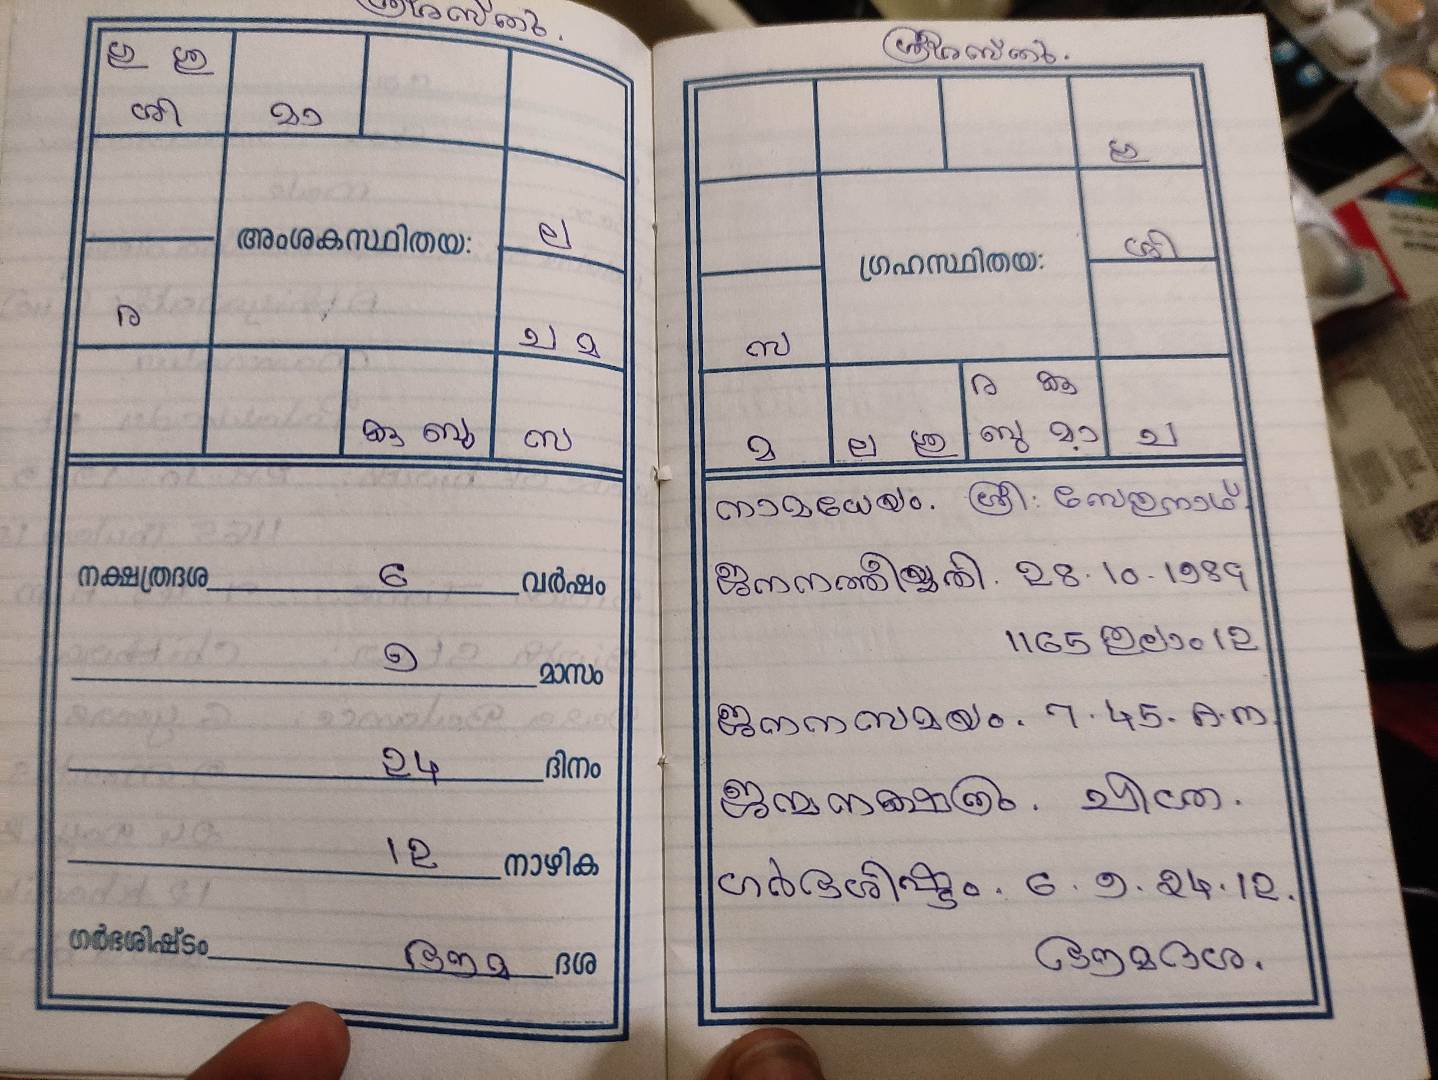 ശ്രീരസ്തു.
ഗു ശു
ശി മാ
അംശകസ്ഥിതയ:
ല
ര
ച മ
കു ബു സ
നക്ഷത്രദശ 6 വർഷം
൭ മാസം
24 ദിനം
12 നാഴിക
ഗർഭശിഷ്ടം ദശ
ശ്രീരസ്തു.
ഗു
ഗ്രഹസ്ഥിതയ:
ശി
സ
ര കു
മ ല ശു ബു മാ ച
നാമധേയം. ശ്രീ:
ജനനത്തീയ്യതി. 28.10.1989
1165 തുലാം 12
ജനനസമയം. 7.45.
ജന്മനക്ഷത്രം. ചിത്ര.
ഗർഭശിഷ്ടം. 6. ൭. 24. 12.